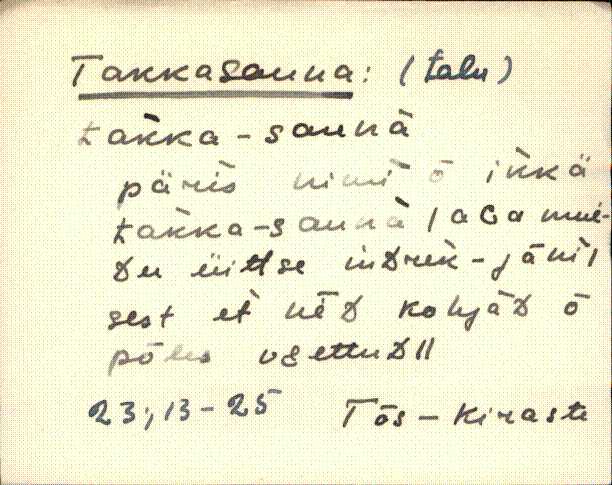 Takkasauna: (talu)
takka-saunà
päris nimi ō ìkkä
takka-saunà | aGa mui-
Du üittse inDrek-jäni |
sest et nēD kohjàD ō
põlio vGettuD ||
23;13-25 Tõs-Kiraste